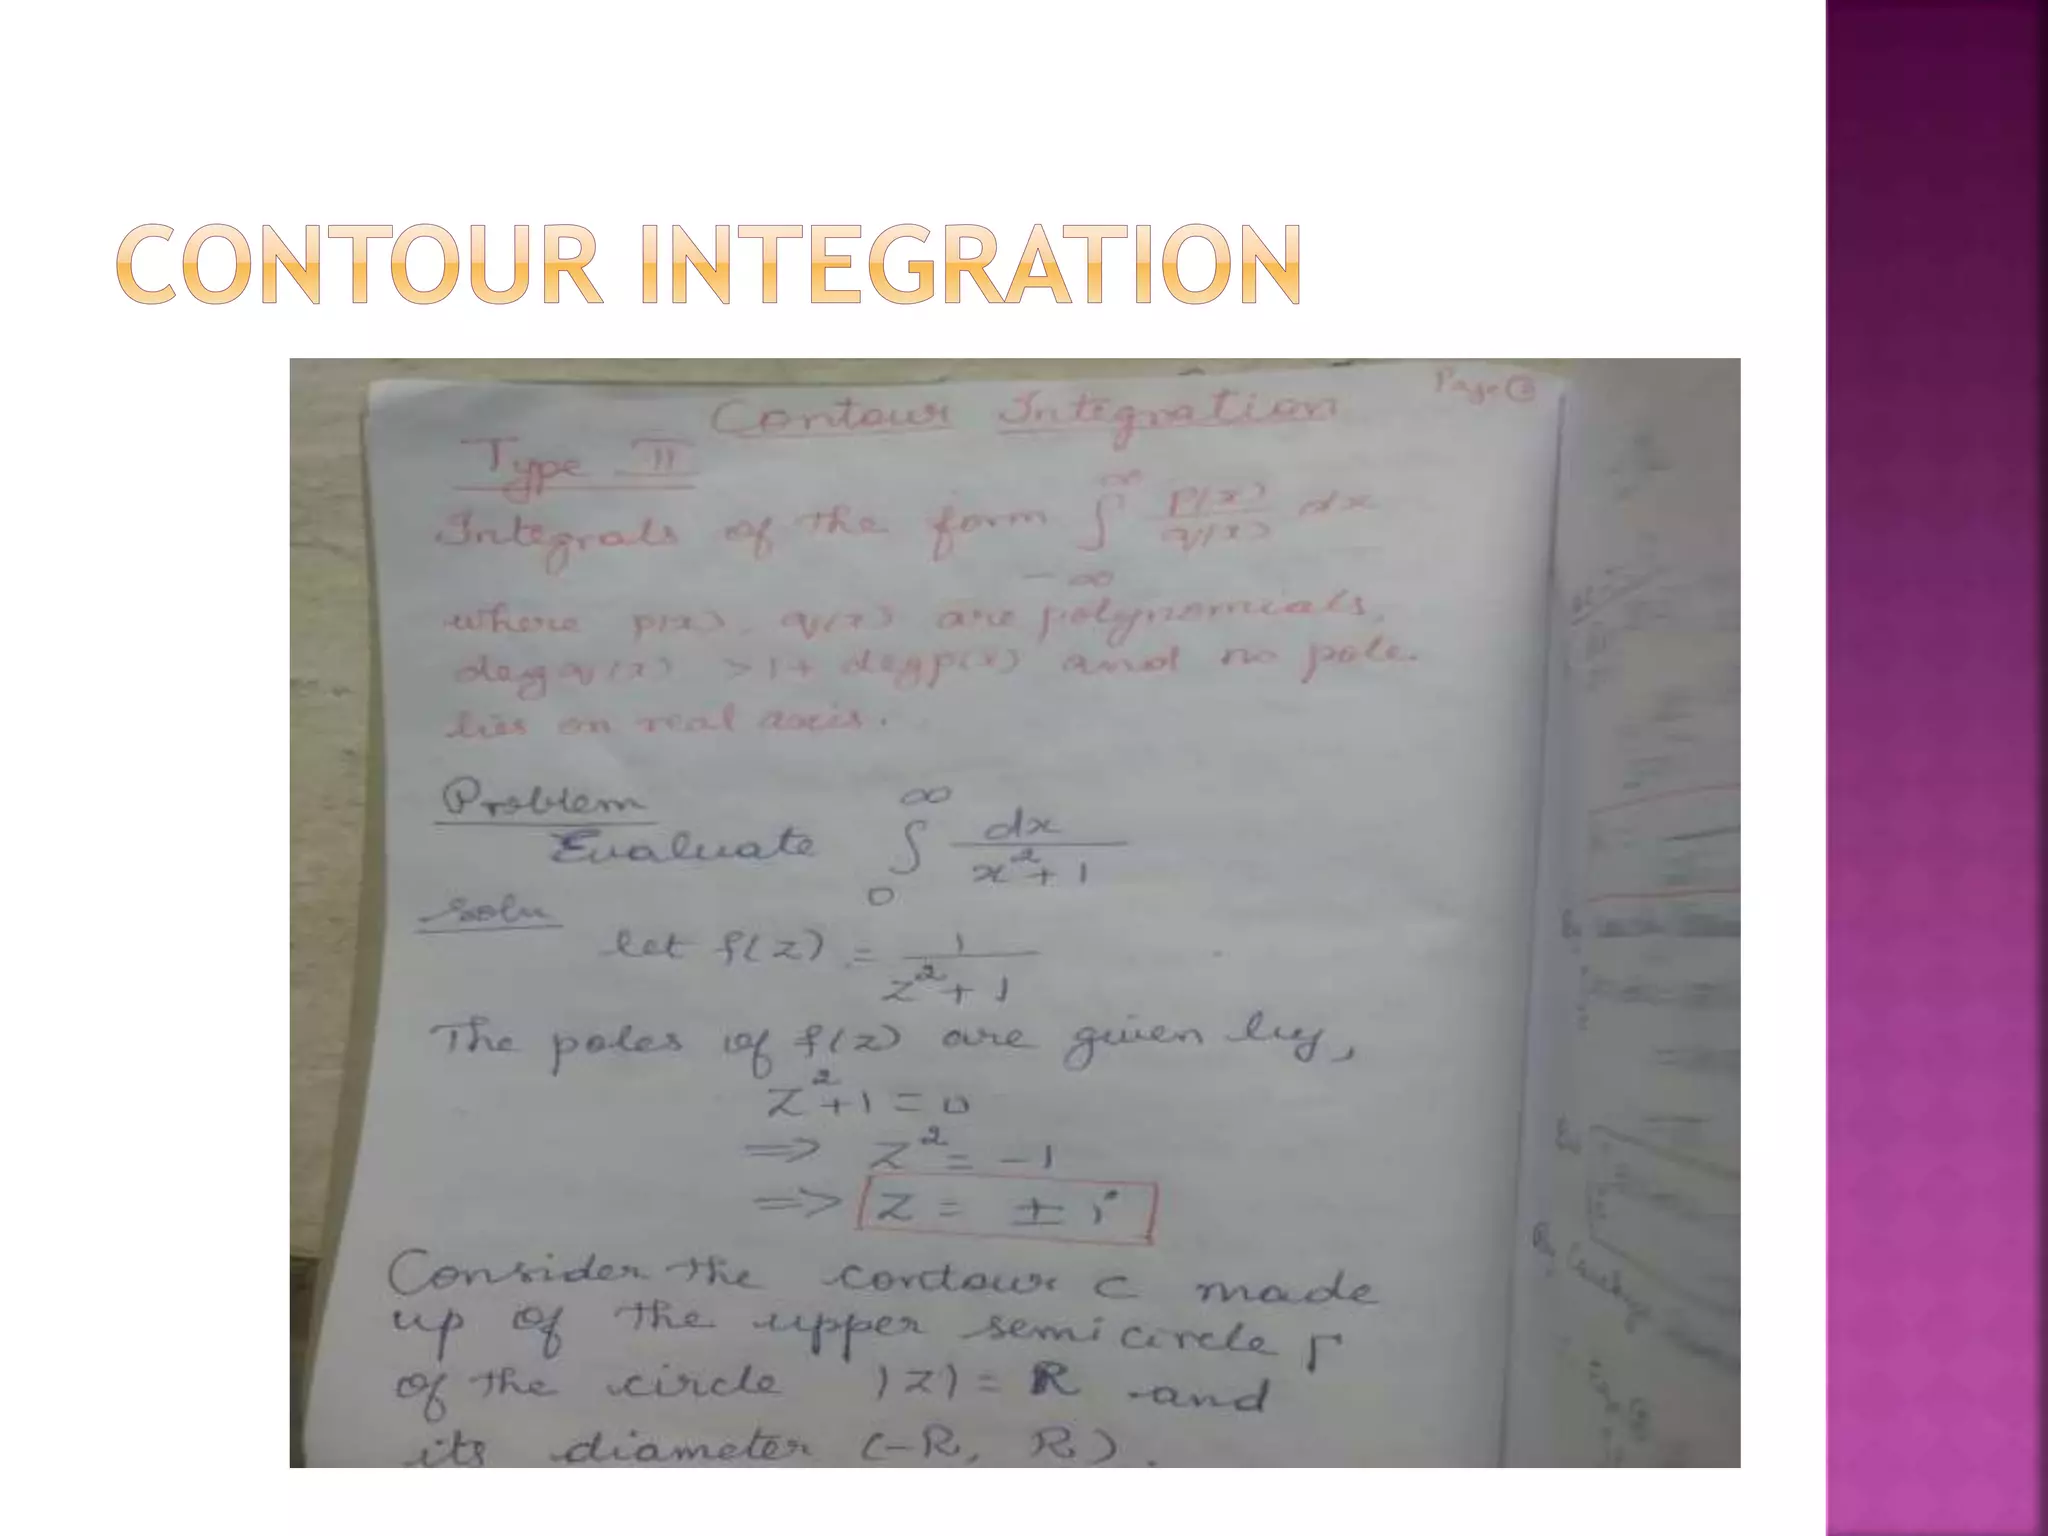 CONTOUR INTEGRATION
Contour Integration
Type II
Integrals of the form ∫_{-∞}^{∞} p(x)/q(x) dx
where p(x), q(x) are polynomials,
deg q(x) > 1 + deg p(x) and no pole
lies on real axis.
Problem
Evaluate ∫_0^∞ dx/(x²+1)
Soln
let f(z) = 1/(z²+1)
The poles of f(z) are given by,
z²+1 = 0
=> z² = -1
=> z = ± i
Consider the contour C made
up of the upper semi circle Γ
of the circle |z| = R and
its diameter (-R, R).